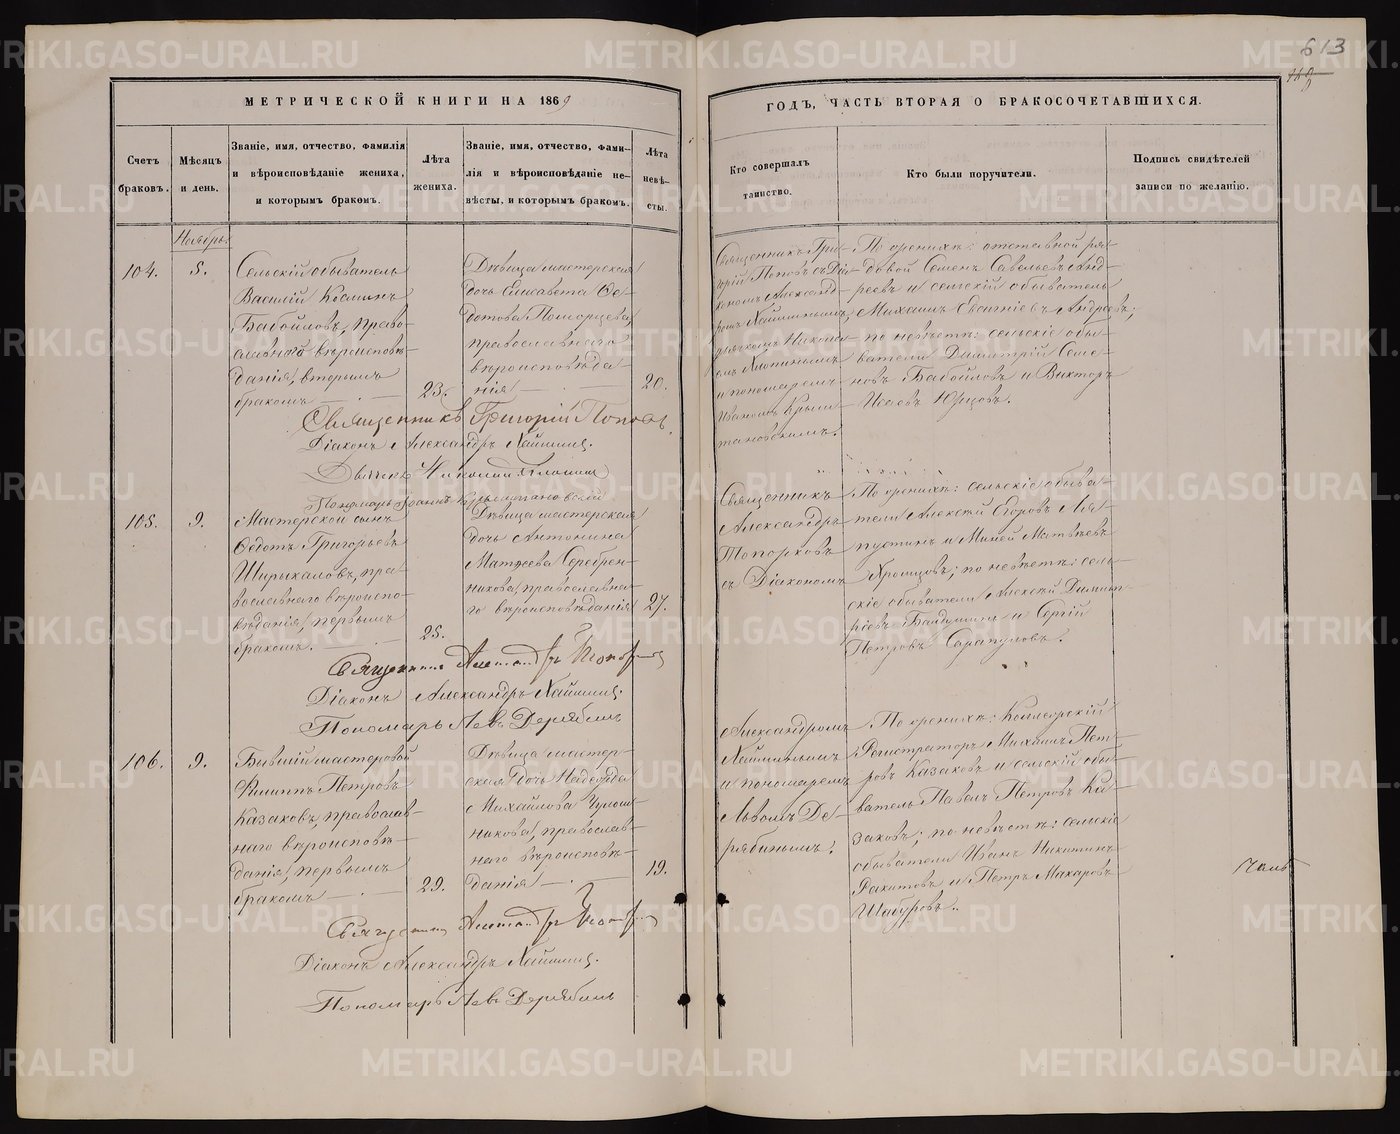 613
МЕТРИЧЕСКОЙ КНИГИ НА 1869
ГОДЪ, ЧАСТЬ ВТОРАЯ О БРАКОСОЧЕТАВШИХСЯ.
Счетъ браковъ.
Мѣсяцъ и день.
Званіе, имя, отчество, фамилія
и вѣроисповѣданіе жениха,
и которымъ бракомъ.
Лѣта
жениха.
Званіе, имя, отчество, фами-
лія и вѣроисповѣданіе не-
вѣсты, и которымъ бракомъ.
Лѣта
невѣ-
сты.
Кто совершалъ
таинство.
Кто были поручители.
Подпись свидѣтелей
записи по желанію.
Ноябрь.
104.
5.
Сельскій обыватель
Василій Косминъ
Бабойловъ, право-
славнаго вѣроисповѣ-
данія, вторымъ
бракомъ
23.
Дѣвица мастерская
дочь Елисавета Ѳе-
дотова Поморцева,
православнаго
вѣроисповѣда-
нія
20.
Священникъ Гри-
горій Поповъ съ Діа-
кономъ Александ-
ромъ Хаймннымъ,
и пономаремъ
Иваномъ
По женихѣ: отставной ря-
довой Семенъ Савельевъ Анд-
реевъ и сельскій обыватель
Михаилъ Андреевъ;
по невѣстѣ: сельскіе обы-
ватели Димитрій Семе-
новъ Бабойловъ и Викторъ
Священникъ Григорій Поповъ.
Діаконъ Александръ
105.
9.
Мастерской сынъ
Ѳедотъ Григорьевъ
Ширыкаловъ, пра-
вославнаго вѣроиспо-
вѣданія, первымъ
бракомъ.
25.
Дѣвица мастерская
дочь Антонина
Матѳеева Серебрен-
никова, православна-
го вѣроисповѣданія
27.
Священникъ
Александръ
Топорковъ
съ Діакономъ
По женихѣ: сельскіе обыва-
тели Алексѣй Егоровъ Ля-
пустинъ и Миней Матвѣевъ
Хромцовъ; по невѣстѣ: сель-
скіе обыватели Алексѣй Димит-
ріевъ и Сергій
Петровъ Сарапуловъ.
Священникъ Александръ Топорковъ
Діаконъ Александръ
Пономарь Левъ Дерябинъ
106.
9.
Бывшій мастеровой
Филиппъ Петровъ
Казаковъ, православ-
наго вѣроисповѣ-
данія, первымъ
бракомъ
29.
Дѣвица мастер-
ская дочь Надежда
Михайлова
православ-
наго вѣроисповѣ-
данія
19.
Александромъ
и пономаремъ
Львомъ Де-
рябинымъ.
По женихѣ: Коллежскій
Регистраторъ Михаилъ Пет-
ровъ Казаковъ и сельскій обы-
ватель Павелъ Петровъ Ка-
заковъ; по невѣстѣ: сельскіе
обыватели Иванъ Никитинъ
Ракитовъ и Петръ Макаровъ
Шабуровъ.
Священникъ Александръ Топорковъ
Діаконъ Александръ
Пономарь Левъ Дерябинъ
METRIKI.GASO-URAL.RU